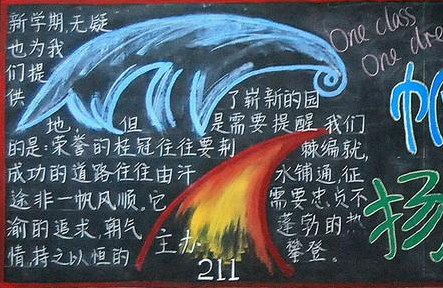 新学期,无疑
也为我
们提
供 了崭新的园
地。但 是需要提醒我们
的是:荣誉的桂冠往往要荆 棘编就,
成功的道路往往由汗 水铺通,征
途非一帆风顺。它 需要忠贞不
渝的追求,朝气 蓬勃的热
情,持之以恒的 攀登。
主办
211
One class
One dre
扬